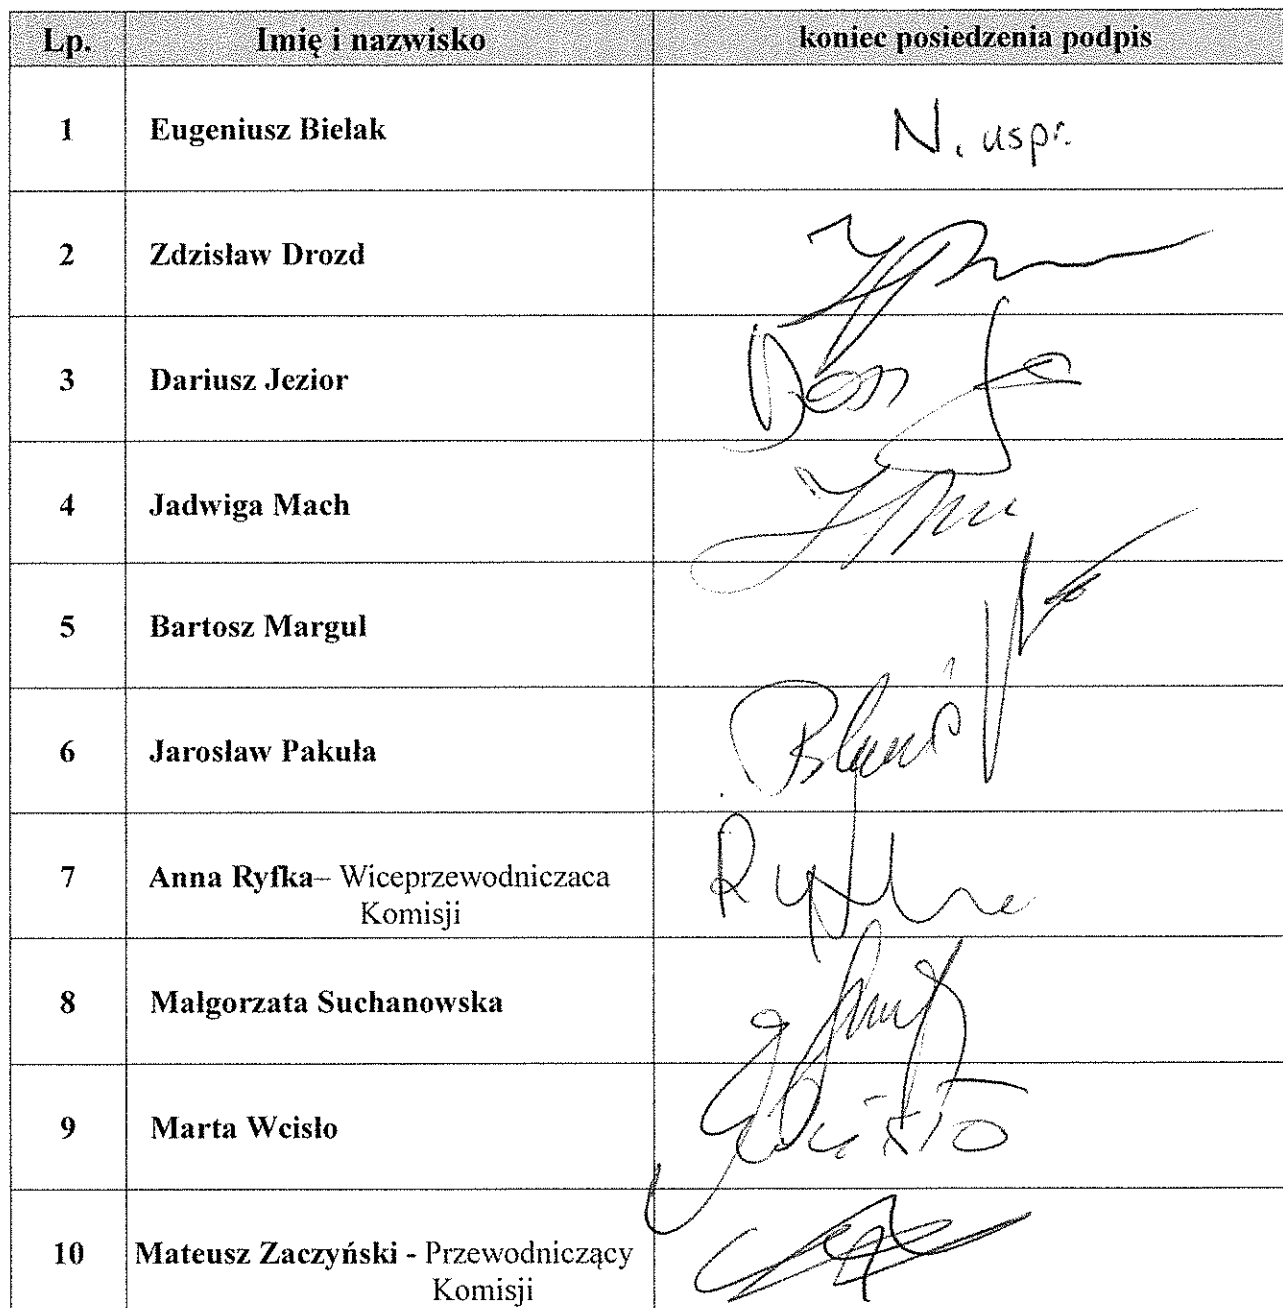 Lp. Imię i nazwisko koniec posiedzenia podpis
1 Eugeniusz Bielak N. uspr.
2 Zdzisław Drozd
3 Dariusz Jezior
4 Jadwiga Mach
5 Bartosz Margul
6 Jarosław Pakuła
7 Anna Ryfka– Wiceprzewodniczaca
Komisji
8 Małgorzata Suchanowska
9 Marta Wcisło
10 Mateusz Zaczyński - Przewodniczący
Komisji